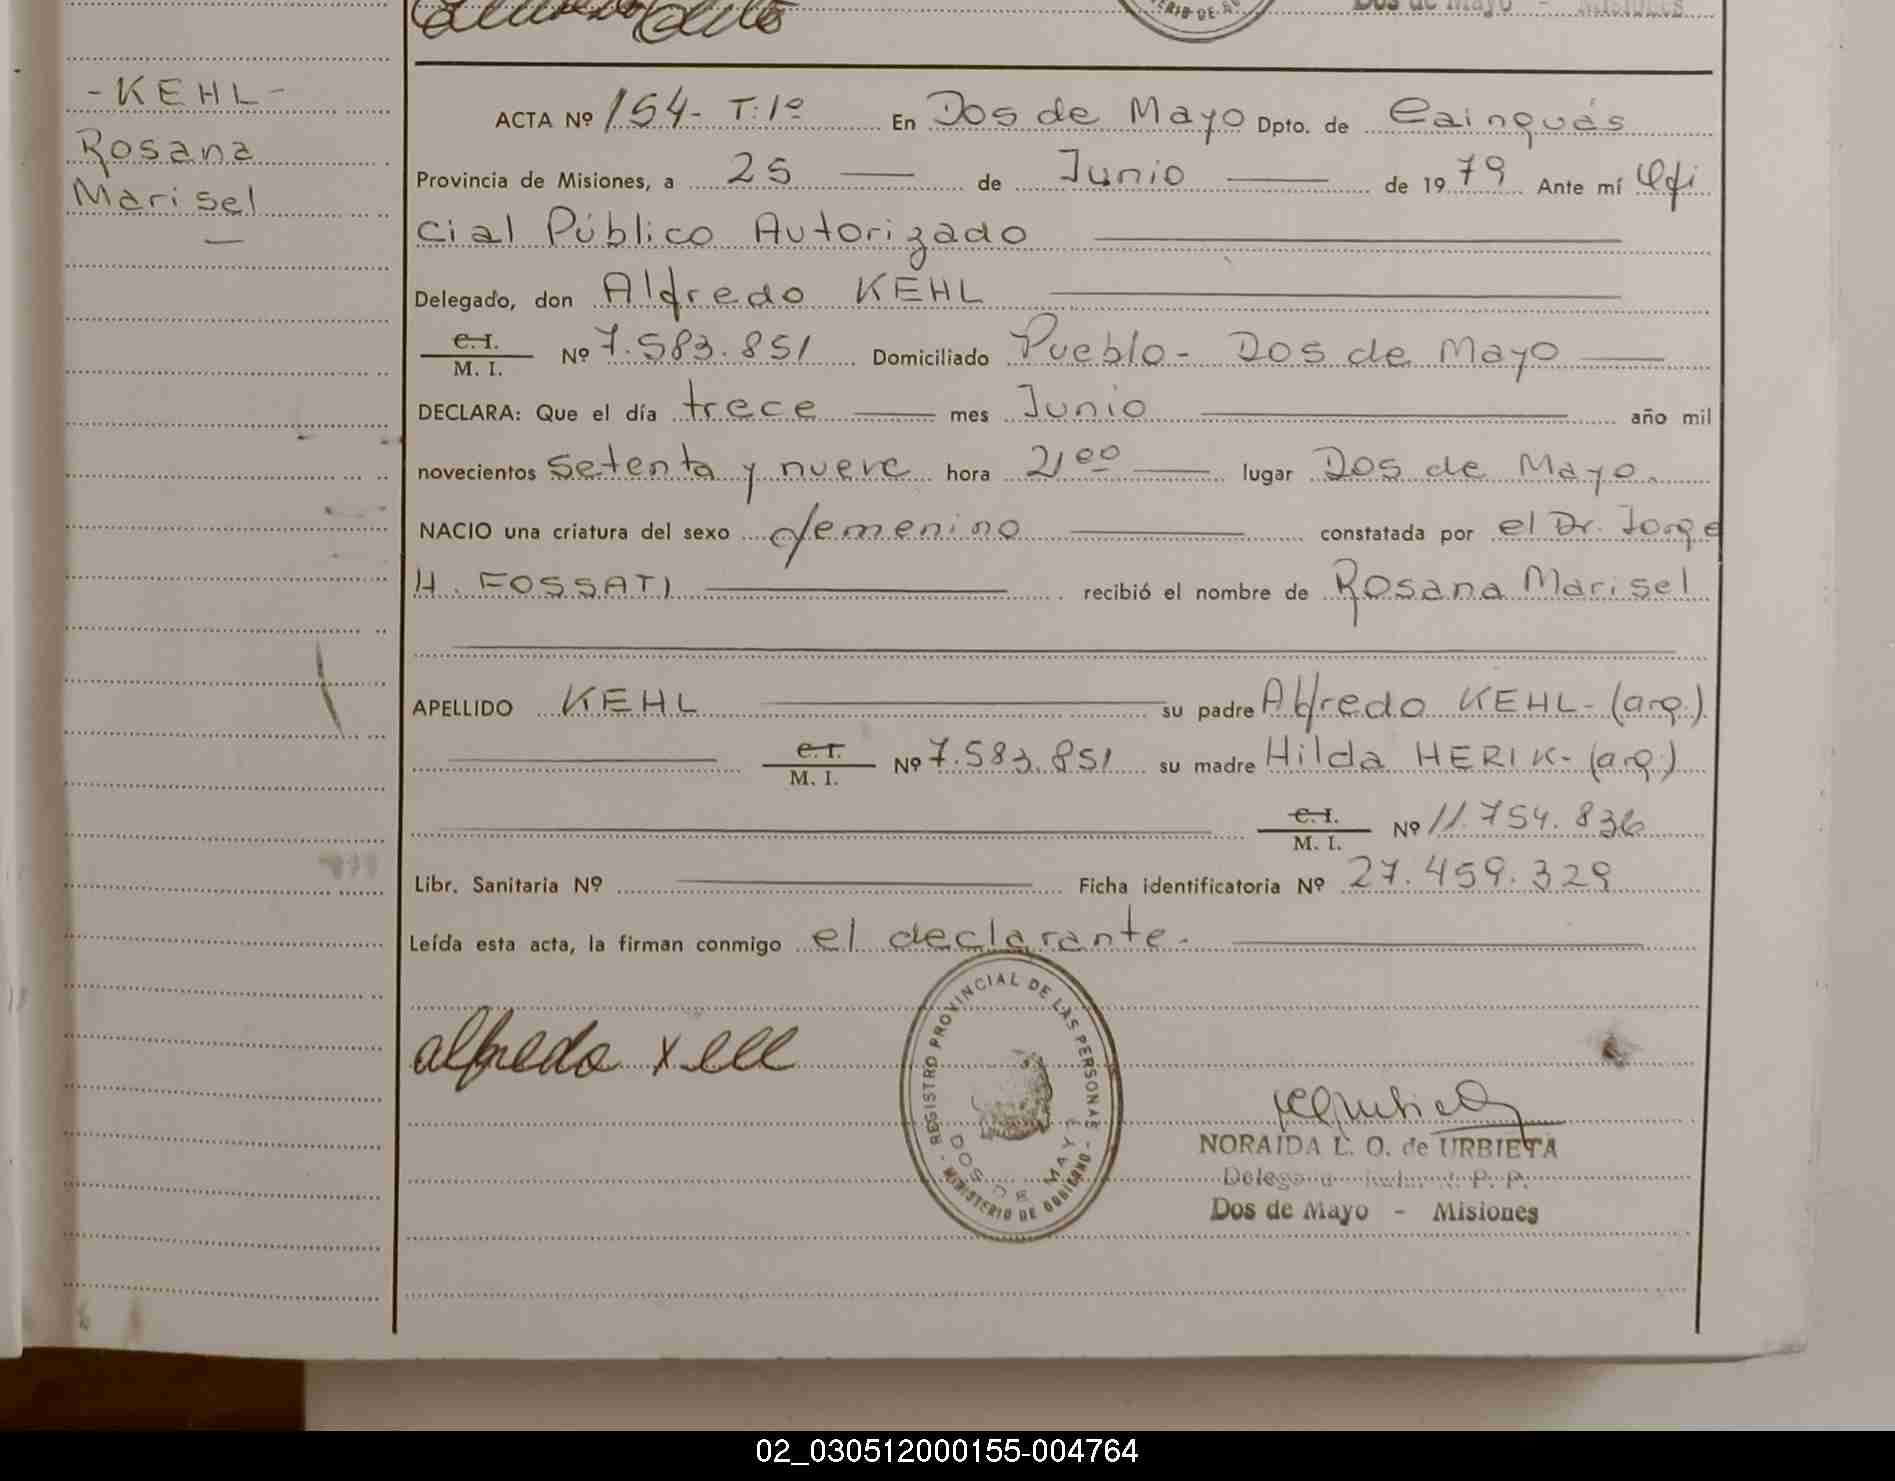 Dos de Mayo - MISIONES
- KEHL -
Rosana
Marisel
ACTA Nº 154- T:1º En Dos de Mayo Dpto. de Cainguás
Provincia de Misiones, a 25 de Junio de 1979 Ante mí Ofi
cial Público Autorizado
Delegado, don Alfredo KEHL
C. I. / M. I. Nº 7.583.851 Domiciliado Pueblo - Dos de Mayo
DECLARA: Que el día trece mes Junio año mil
novecientos setenta y nueve hora 21 00 lugar Dos de Mayo.
NACIO una criatura del sexo femenino constatada por el Dr. Jorge
H. FOSSATI recibió el nombre de Rosana Marisel
APELLIDO KEHL su padre Alfredo KEHL - (arg.)
C. I. / M. I. Nº 7.583.851 su madre Hilda HERIK - (arg.)
C. I. / M. I. Nº 11.754.836
Libr. Sanitaria Nº Ficha identificatoria Nº 27.459.329
Leída esta acta, la firman conmigo el declarante.-
REGISTRO PROVINCIAL DE LAS PERSONAS - MINISTERIO DE GOBIERNO -
DOS DE MAYO
alfredo kell
NORAIDA L. O. de URBIETA
Dos de Mayo - Misiones
02_030512000155-004764